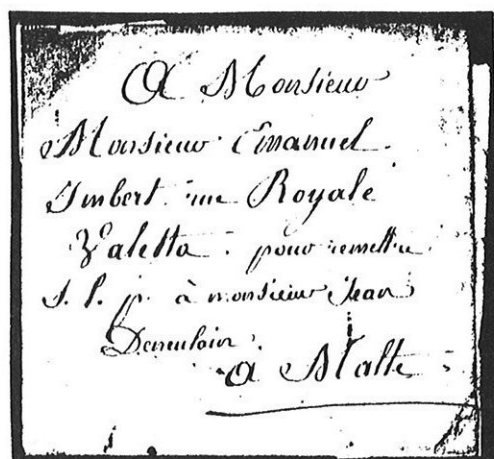 A Monsieur
Monsieur Emanuel
Imbert rue Royale
Valetta. pour remettre
s. l. p. à monsieur Jean
A Malte